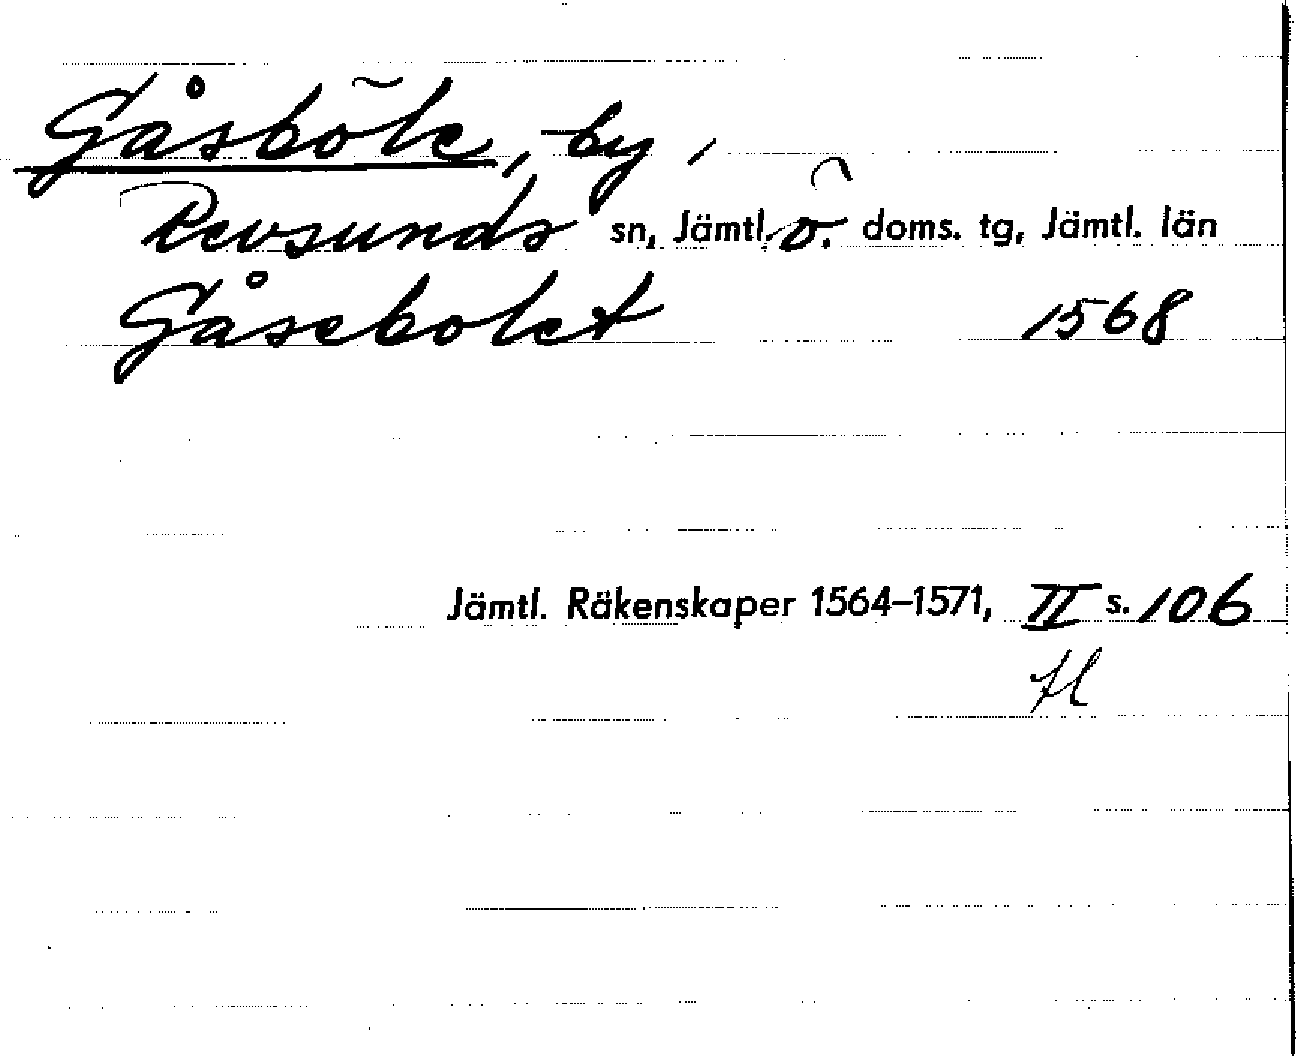 Gåsböle, by,
Revsunds sn, Jämtl. ö. doms. tg, Jämtl. län
Gåsebolet 1568
Jämtl. Räkenskaper 1564–1571, II s. 106